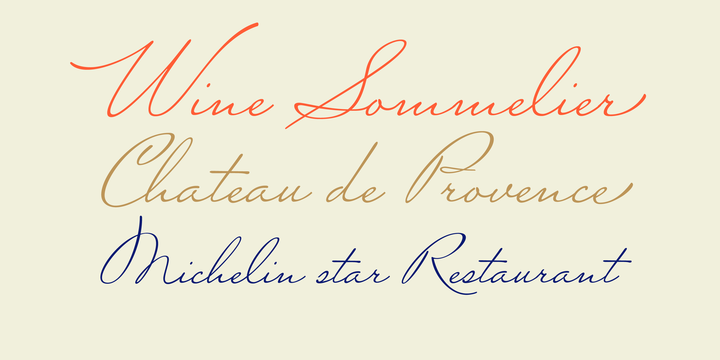 Wine Sommelier
Chateau de Provence
Michelin star Restaurant